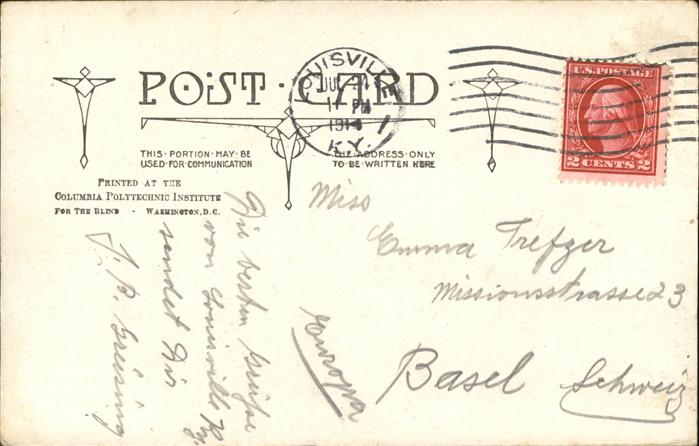 POST CARD
THIS PORTION MAY BE
USED FOR COMMUNICATION
THE ADDRESS ONLY
TO BE WRITTEN HERE
PRINTED AT THE
COLUMBIA POLYTECHNIC INSTITUTE
FOR THE BLIND - WASHINGTON, D.C.
LOUISVILLE
PM
1914
KY.
U.S. POSTAGE
2 CENTS 2
Die besten Grüße
von Louisville Ky.
sendet Dir
J. B.
Miss
Emma Trefzer
Missionsstrasse 23
Basel Schweiz
Europa